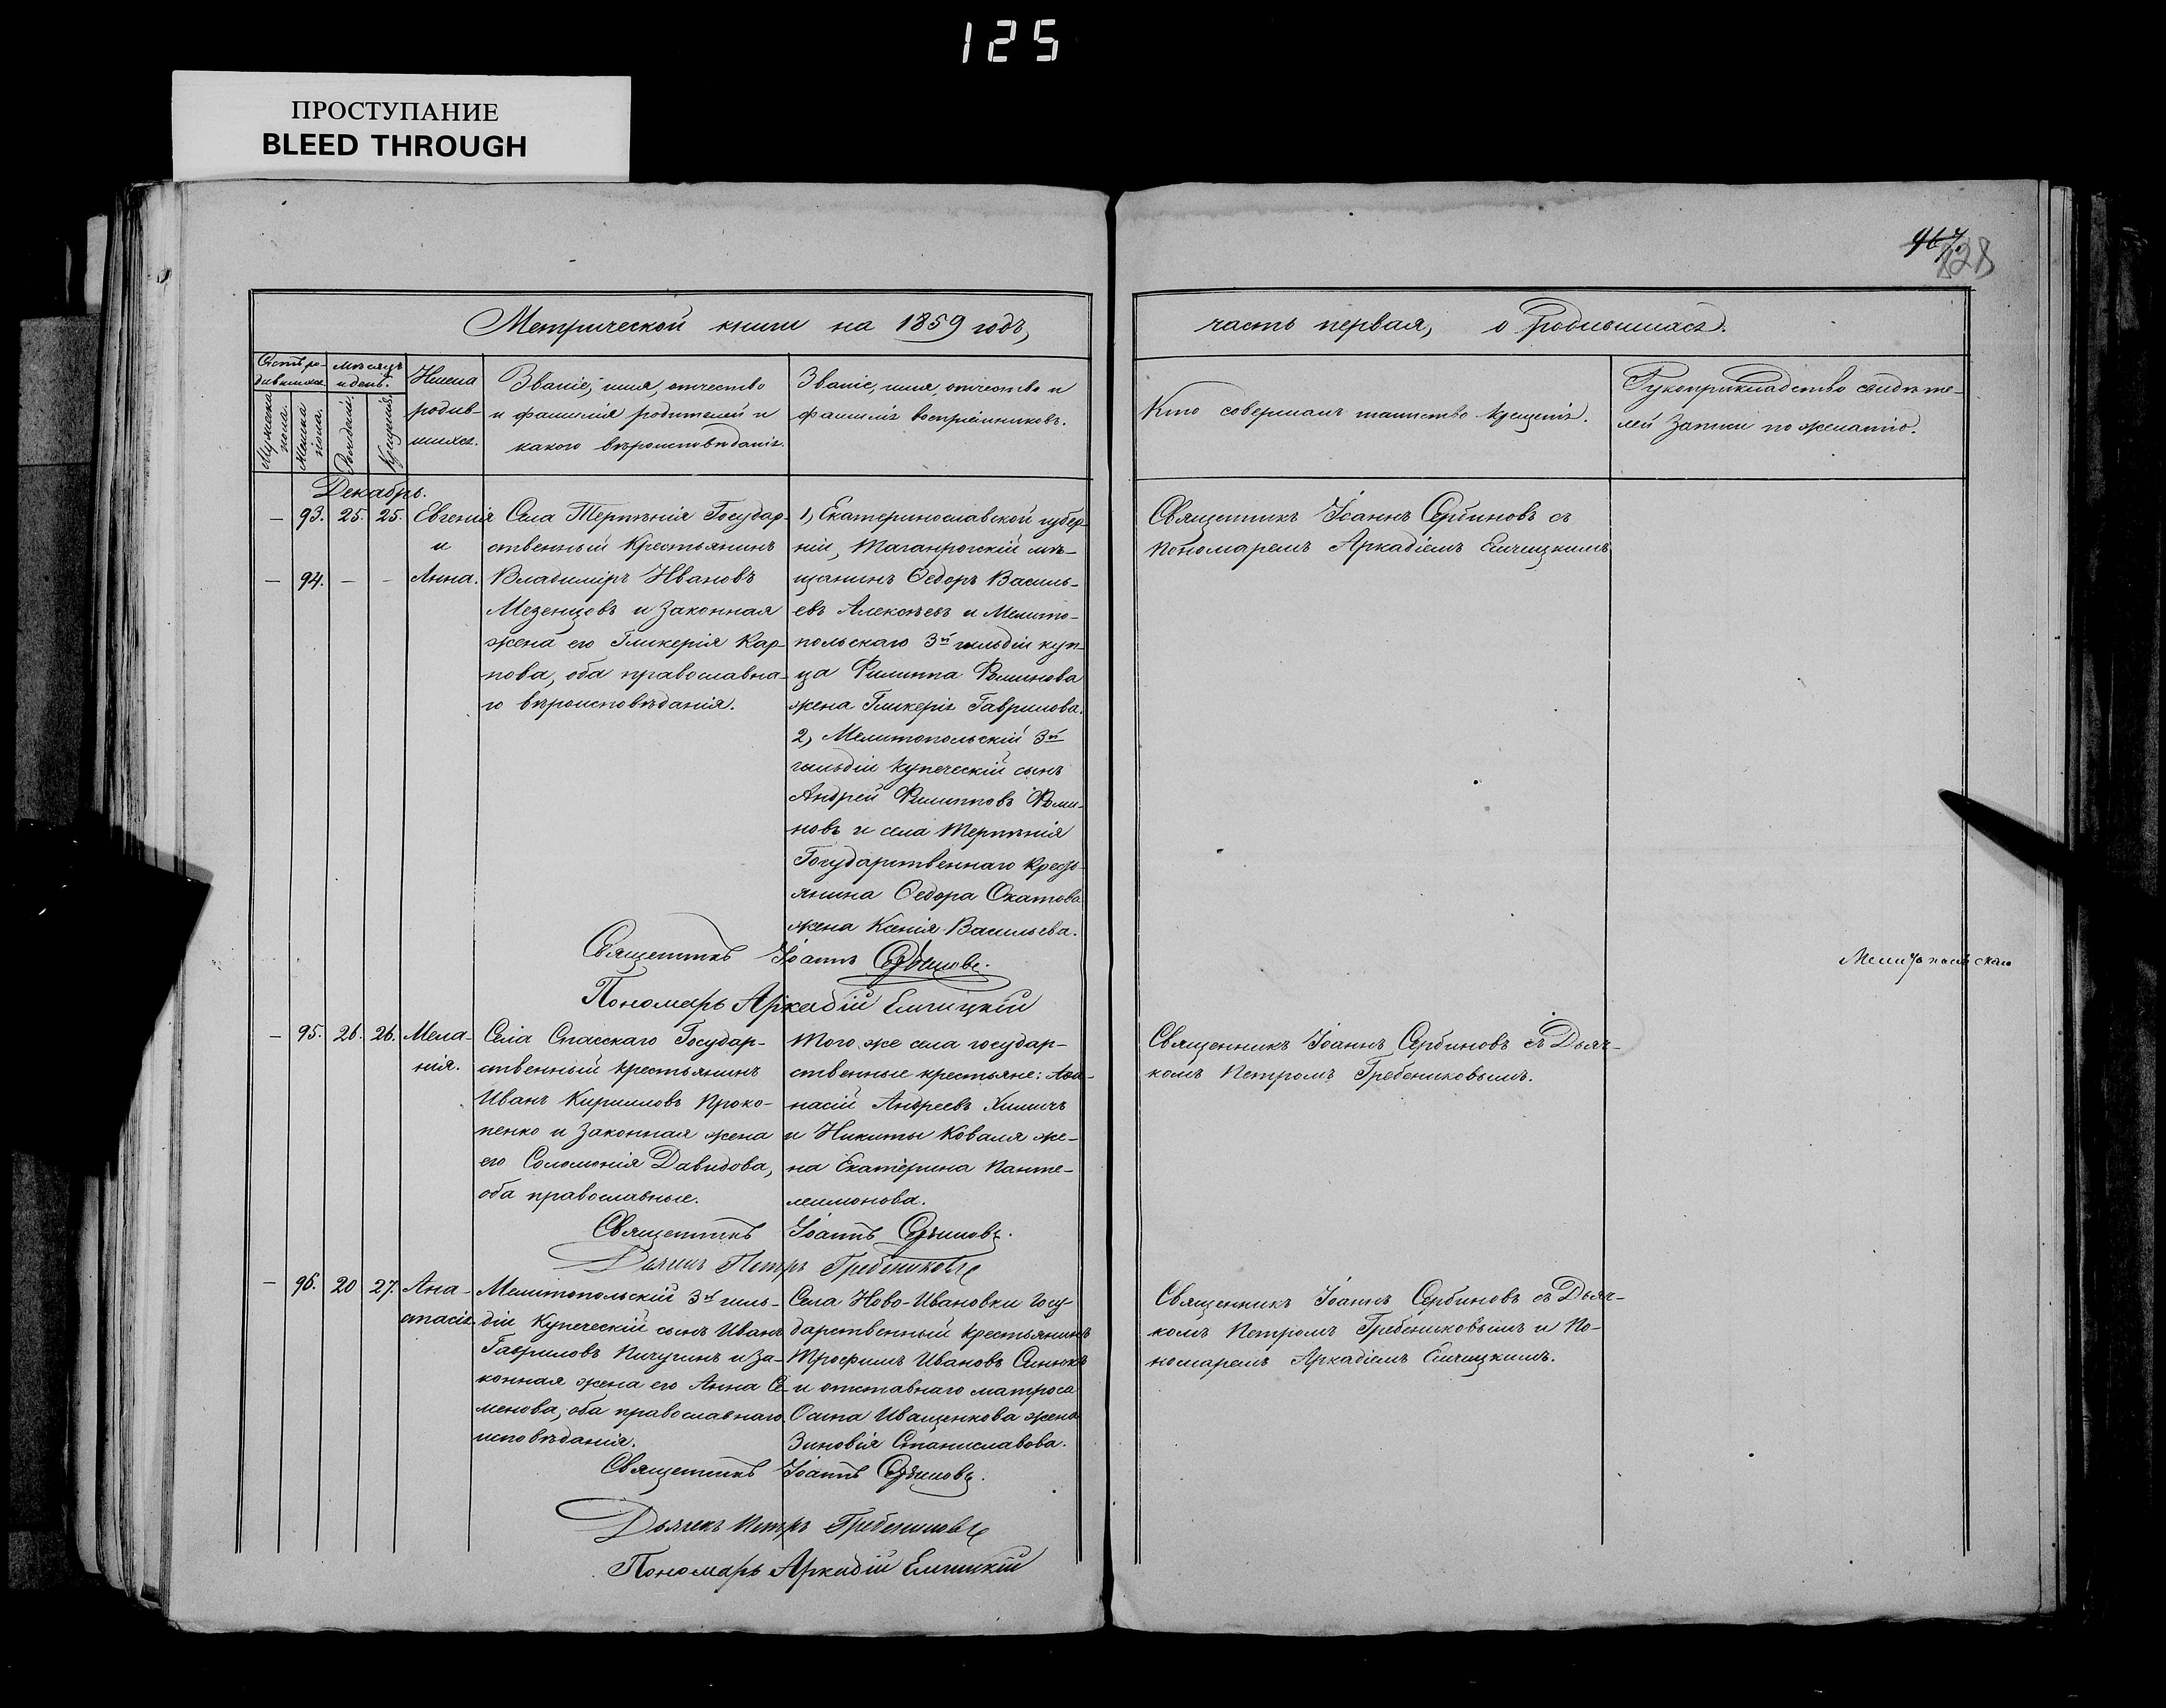 125
ПРОСТУПАНИЕ
BLEED THROUGH
967.
128
Метрической книги на 1859 годъ,
часть первая, о родившихся.
Счетъ ро-
дившихся
Мужеска
пола.
Женска
пола.
Мѣсяцъ
и день.
Рожденія.
Крещенія.
Имена
родив-
шихся.
Званіе, имя, отчество
и фамилія родителей и
какого вѣроисповѣданія.
Званіе, имя, отчество и
фамилія воспріемниковъ.
Кто совершалъ таинство крещенія.
Рукоприкладство свидѣте-
лей записи по желанію.
Декабрь.
— 93. 25. 25. Евгенія
и
— 94. — — Анна.
Села Терпѣнія Государ-
ственный Крестьянинъ
Владиміръ Ивановъ
Мезенцовъ и законная
жена его Гликерія Кар-
пова, оба православна-
го вѣроисповѣданія.
1, Екатеринославской губер-
ніи, Таганрогскій мѣ-
щанинъ Ѳедоръ Василь-
евъ Алексѣевъ и Мелито-
польскаго 3й гильдіи куп-
ца Филиппа Фоминова
жена Гликерія Гаврилова.
2, Мелитопольскій 3й
гильдіи купеческій сынъ
Андрей Филипповъ Фоми-
новъ и села Терпѣнія
Государственнаго кресть-
янина Ѳедора Окатова
жена Ксенія Васильева.
Священникъ Іоаннъ Сербиновъ съ
Пономаремъ Аркадіемъ Ельчицкимъ
Священникъ Іоаннъ Сербиновъ.
Пономарь Аркадій Ельчицкій
Мелитопольскаго
— 95. 26. 26. Мела-
нія.
Села Спасскаго Государ-
ственный крестьянинъ
Иванъ Кирилловъ Проко-
пенко и законная жена
его Соломонія Давидова,
оба православные.
Того же села государ-
ственные крестьяне: Аѳа-
насій Андреевъ Химичъ
и Никиты Коваля же-
на Екатерина Панте-
леимонова.
Священникъ Іоаннъ Сербиновъ съ Дьяч-
комъ Петромъ Гребениковымъ.
Священникъ Іоаннъ Сербиновъ.
Дьячекъ Петръ Гребениковъ
— 96. 20 27. Ана-
стасія.
Мелитопольскій 3й гиль-
діи Купеческій сынъ Иванъ
Гавриловъ Пичугинъ и за-
конная жена его Анна Се-
менова, оба православнаго
исповѣданія.
Села Ново-Ивановки Госу-
дарственный крестьянинъ
Трофимъ Ивановъ Синюкъ
и отставнаго матроса
Осипа Иващенкова жена
Зиновія Станиславова.
Священникъ Іоаннъ Сербиновъ съ Дьяч-
комъ Петромъ Гребениковымъ и По-
номаремъ Аркадіемъ Ельчицкимъ.
Священникъ Іоаннъ Сербиновъ.
Дьячекъ Петръ Гребениковъ
Пономарь Аркадій Ельчицкій